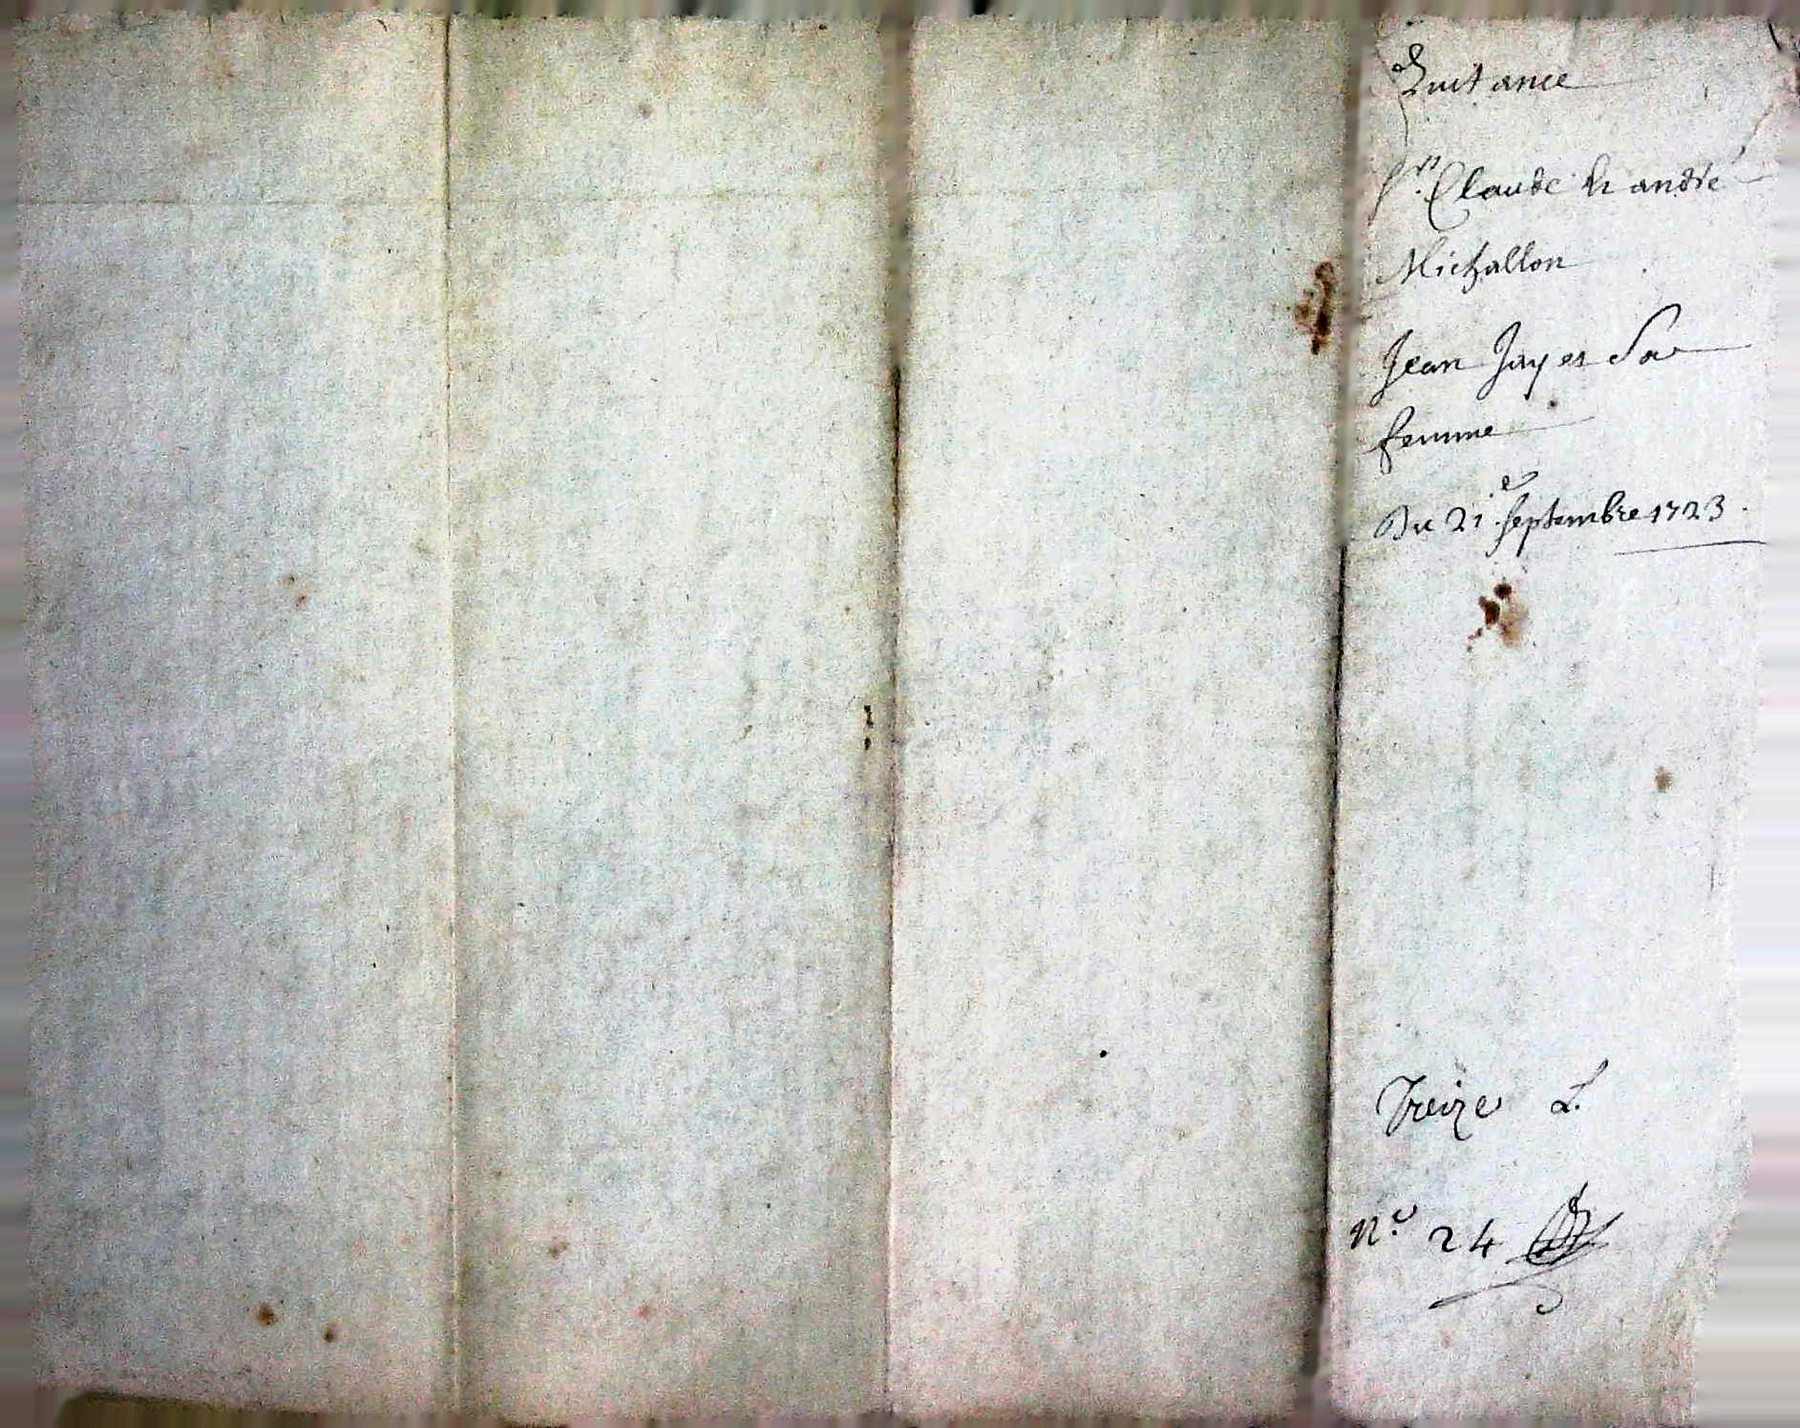 Quitance
Srs. Claude & andré
Michallon
Jean Jay et Sa
femme
Du 21.e septembre 1723.
Treize L.
N.o 24